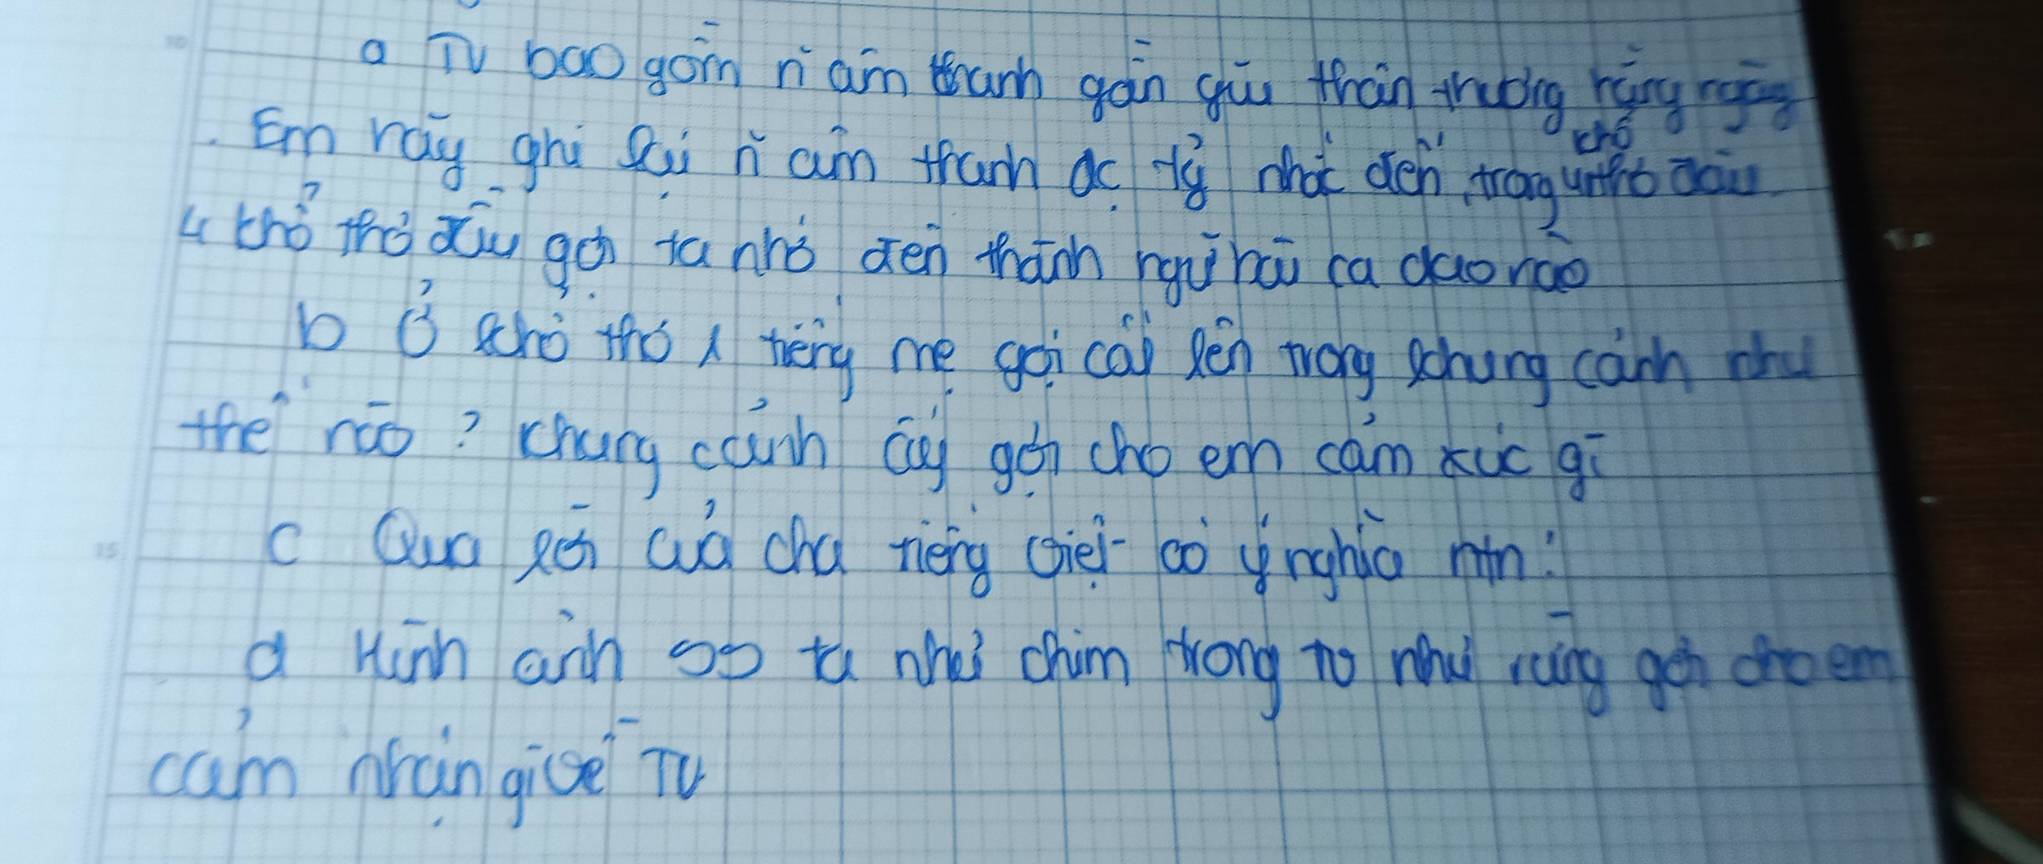 a TV bao gồm ñ âm thanh gần gũi thân thương hằng ngày
Em hãy ghi lại ñ âm thanh đc tg̉ nhắc đến trong khổ thơ đầu
4 khổ thơ đầu gợi ta nhớ đến thành ngữ hay ca dao nào
b ở khổ thơ 1 tiếng mẹ gọi cất lên trong khung cảnh như
thế nào ? khung cảnh ấy gợi cho em cảm xúc gì
c Qua lời của cha tiếng việt có ý nghĩa ntn ?
d Hình ảnh so ta như chim trong tv như rừng gợi cho em
cảm nhận gì về TV